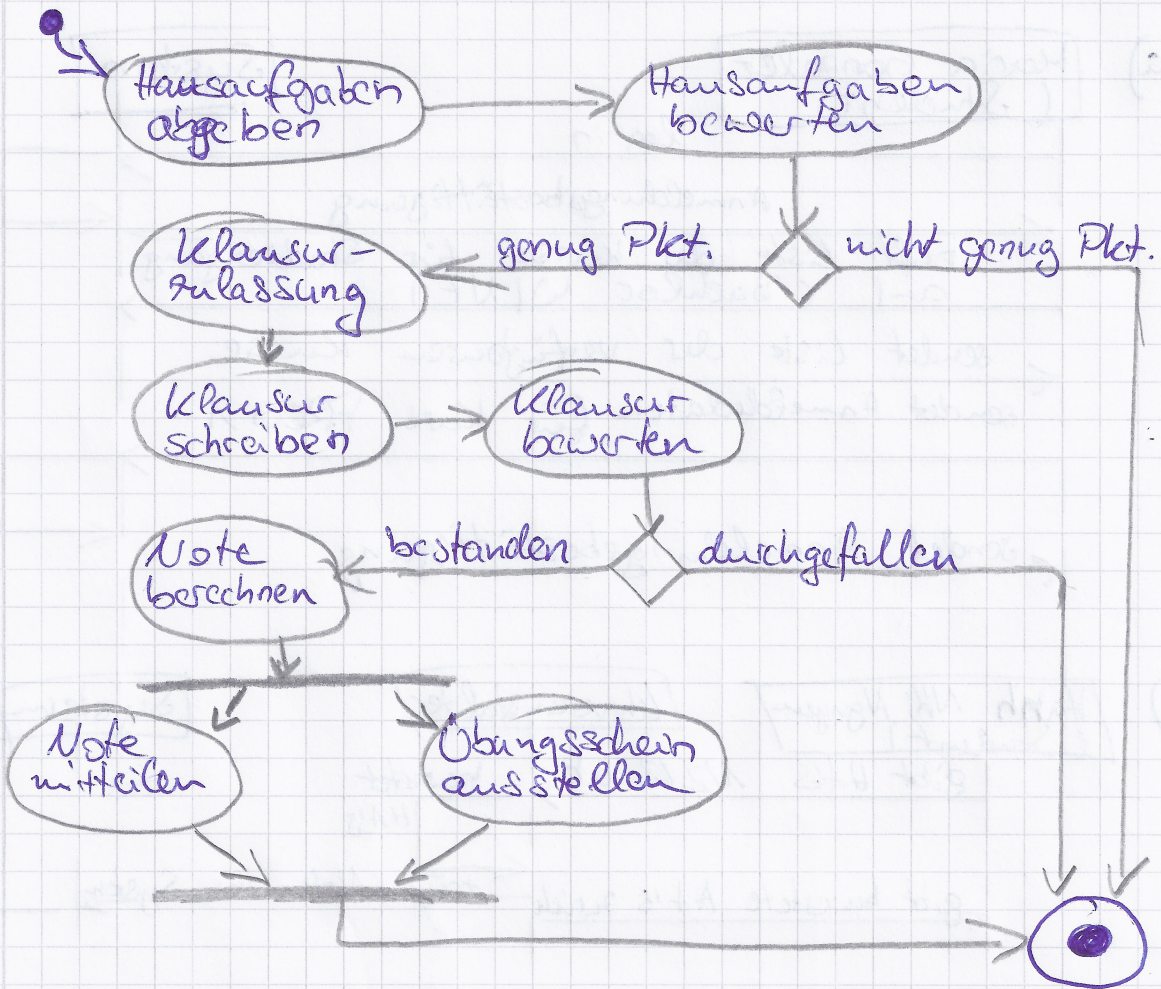 Hausaufgaben
abgeben
Hausaufgaben
bewerten
genug Pkt.
nicht genug Pkt.
Klausur-
zulassung
Klausur
schreiben
Klausur
bewerten
bestanden
durchgefallen
Note
berechnen
Note
mitteilen
Übungsschein
ausstellen